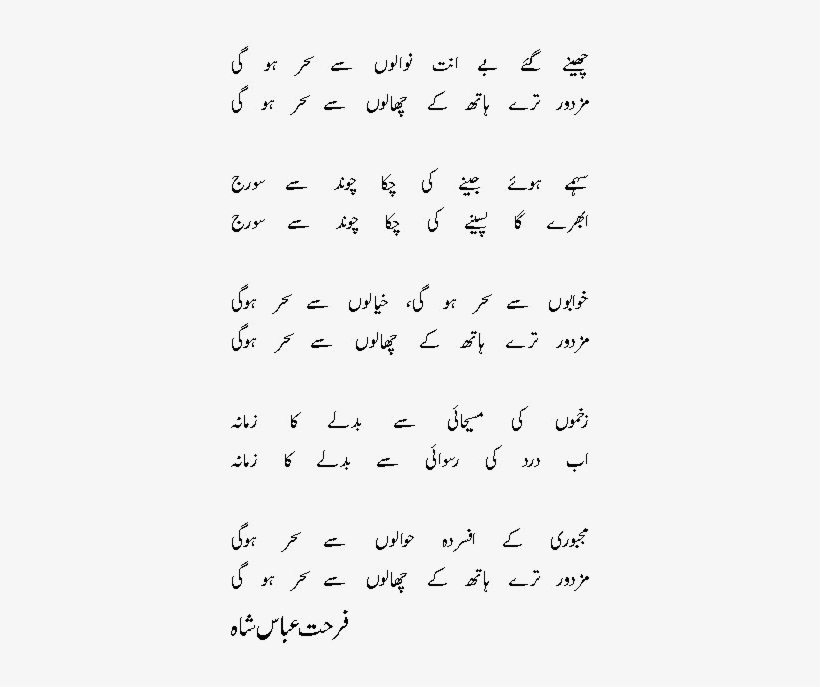 چھینے گئے بے انت نوالوں سے سحر ہو گی
مزدور ترے ہاتھ کے چھالوں سے سحر ہو گی
سہمے ہوئے جینے کی چکا چوند سے سورج
ابھرے گا پسینے کی چکا چوند سے سورج
خوابوں سے سحر ہو گی، خیالوں سے سحر ہوگی
مزدور ترے ہاتھ کے چھالوں سے سحر ہوگی
زخموں کی مسیحائی سے بدلے کا زمانہ
اب درد کی رسوائی سے بدلے کا زمانہ
مجبوری کے افسردہ حوالوں سے سحر ہوگی
مزدور ترے ہاتھ کے چھالوں سے سحر ہو گی
فرحت عباس شاہ